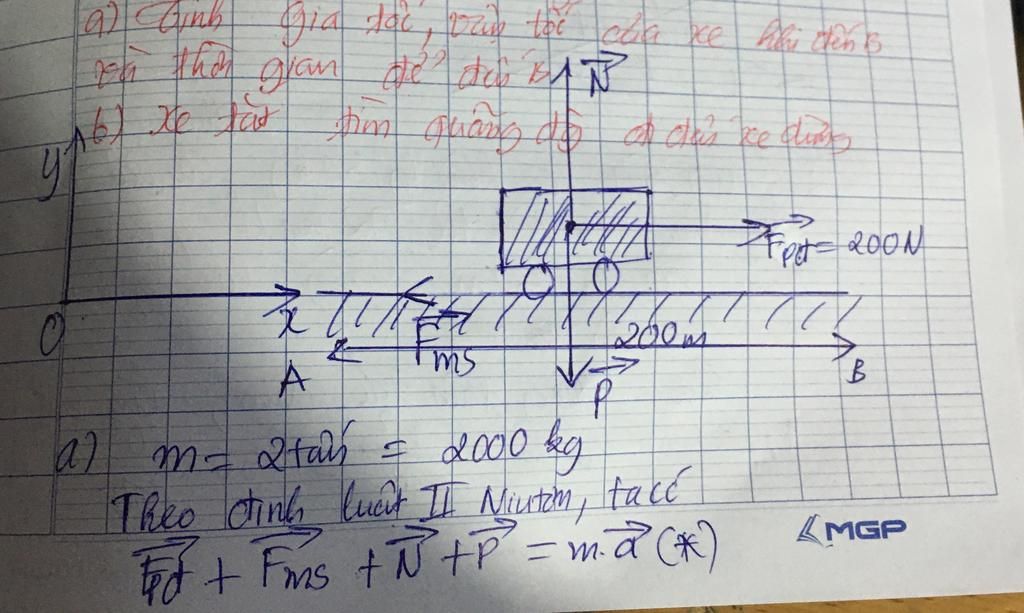 a) Tính gia tốc, vận tốc của xe khi đến B
và thời gian để đến B
b) xe tắt tìm quãng đg đi đến xe dừng
N
y
Fpđ = 200N
O
x
Fms
200m
A
B
P
a) m = 2 tấn = 2000 kg
Theo định luật II Niutơn, ta có
Fpđ + Fms + N + P = m.a (*)
MGP